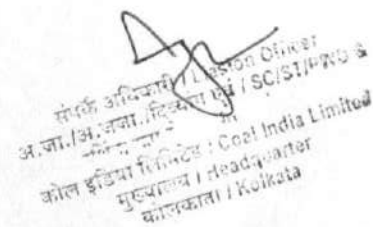 संपर्क अधिकारी / Liaison Officer
अ.जा./अ.जजा./दिव्यांग एवं / SC/ST/PWD &
कोल इंडिया लिमिटेड : Coal India Limited
मुख्यालय / Headquarter
कोलकाता / Kolkata